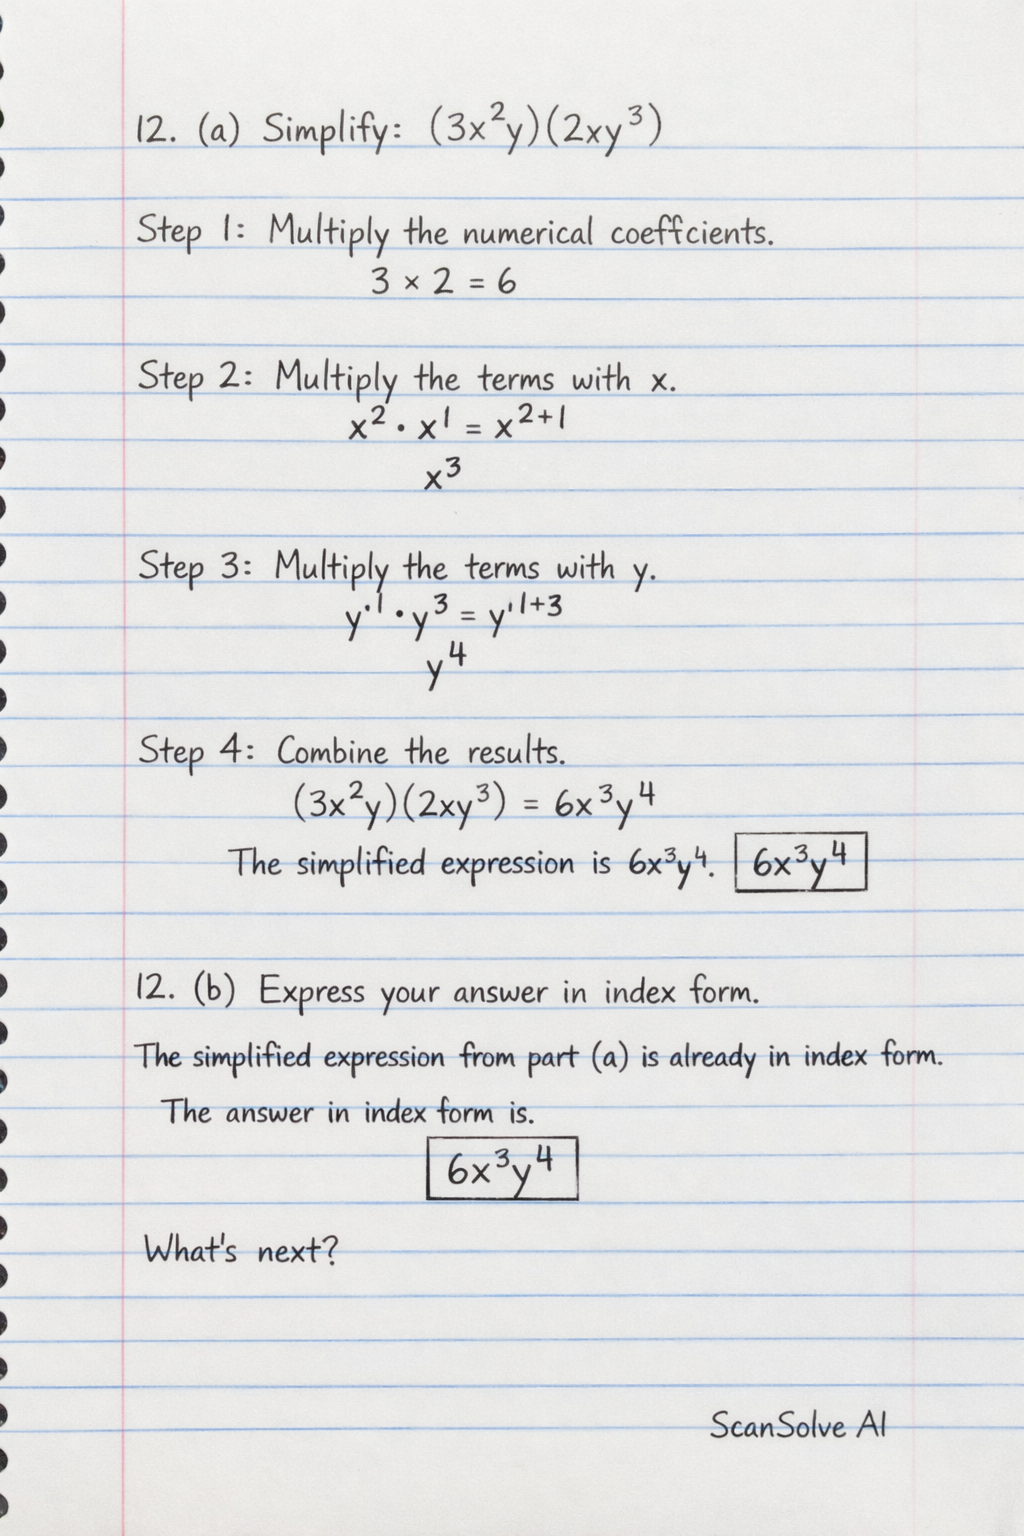 12. (a) Simplify: (3x²y)(2xy³)
Step 1: Multiply the numerical coeffcients.
3 × 2 = 6
Step 2: Multiply the terms with x.
x² · x¹ = x²⁺¹
x³
Step 3: Multiply the terms with y.
y'¹ · y³ = y'¹⁺³
y⁴
Step 4: Combine the results.
(3x²y)(2xy³) = 6x³y⁴
The simplified expression is 6x³y⁴. 6x³y⁴
12. (b) Express your answer in index form.
The simplified expression from part (a) is already in index form.
The answer in index form is.
6x³y⁴
What's next?
ScanSolve AI